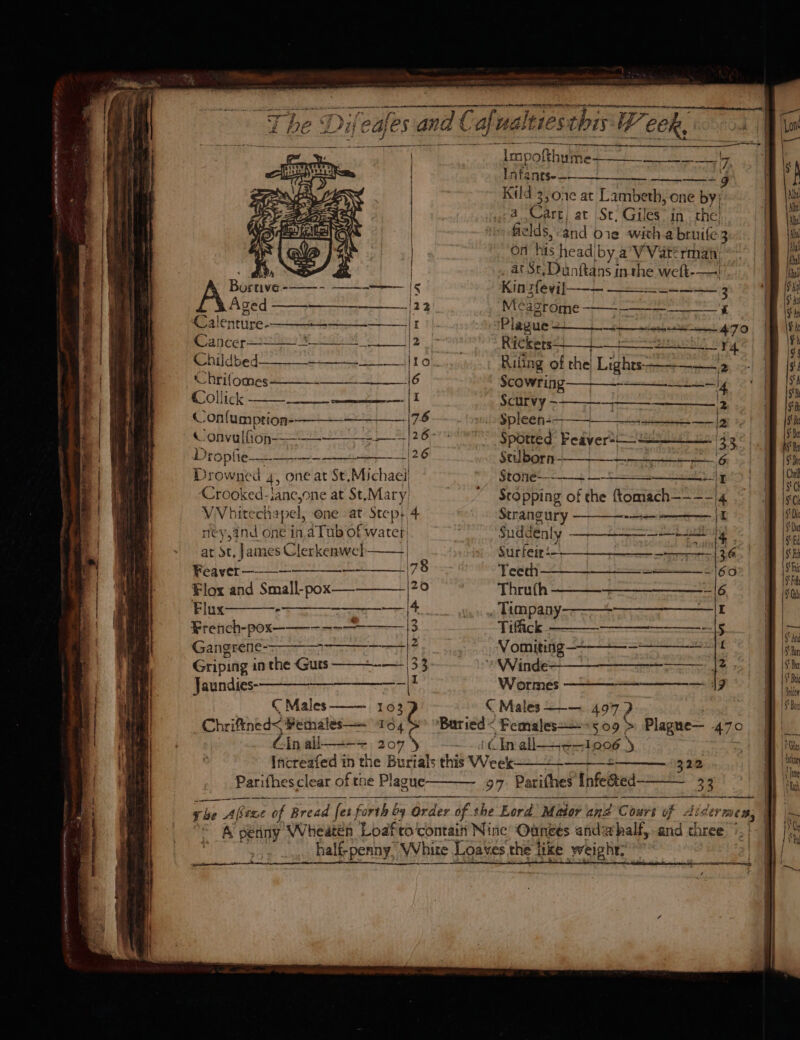 The Diſeaſes and Caſualties this Week,
Abortive 5
Aged 22
Calenture 1
Cancer 2
Childbed 10
Chriſomes 6
Collick 1
Conſumption 76
Convulſion 26
Dropſie 26
Drowned 4, one at St. Michael
Crooked-lane, one at St, Mary
VVhitechapel, one at Step- 4
ney, and one in a Tub of water
at St. James Clerkenwel
Feaver 78
Flox and Small-pox 20
Flux 4
French-pox 3
Gangrene 2
Griping in the Guts 33
Jaundies 1
Impoſthume 7
Infants 9
Kild 3, one at Lambeth, one by
a Cart, at St, Giles in the
fields, and one with a bruiſe 3
on his head by a VVaterman
at St, Dunſtans in the weſt
Kingſevil 3
Meagrome 1
Plague 470
Rickets 14
Riſing of the Lights 2
Scowring 4
Scurvy 2
Spleen 2
Spotted Feaver 33
Stilborn 6
Stone 1
Stopping of the ſtomach 4
Strangury 1
Suddenly 4
Surfeit 36
Teeth 60
Thruſh 6
Timpany 1
Tiſſick 5
Vomiting 1
VVinde 2
Wormes 9
Chriſtned Males 103 Females 104 In all 207
Buried Males 497 Females 509 In all 1006 Plague 470
Increaſed in the Burials this VVeek 322
Pariſhes clear of the Plague 97 Pariſhes Infected 33
The Aſſize of Bread ſet forth by Order of the Lord Maior and Court of Aldermen,
A penny VVheaten Loaf to contain Nine Ounces and a half, and three
half-penny VVhite Loaves the like weight,